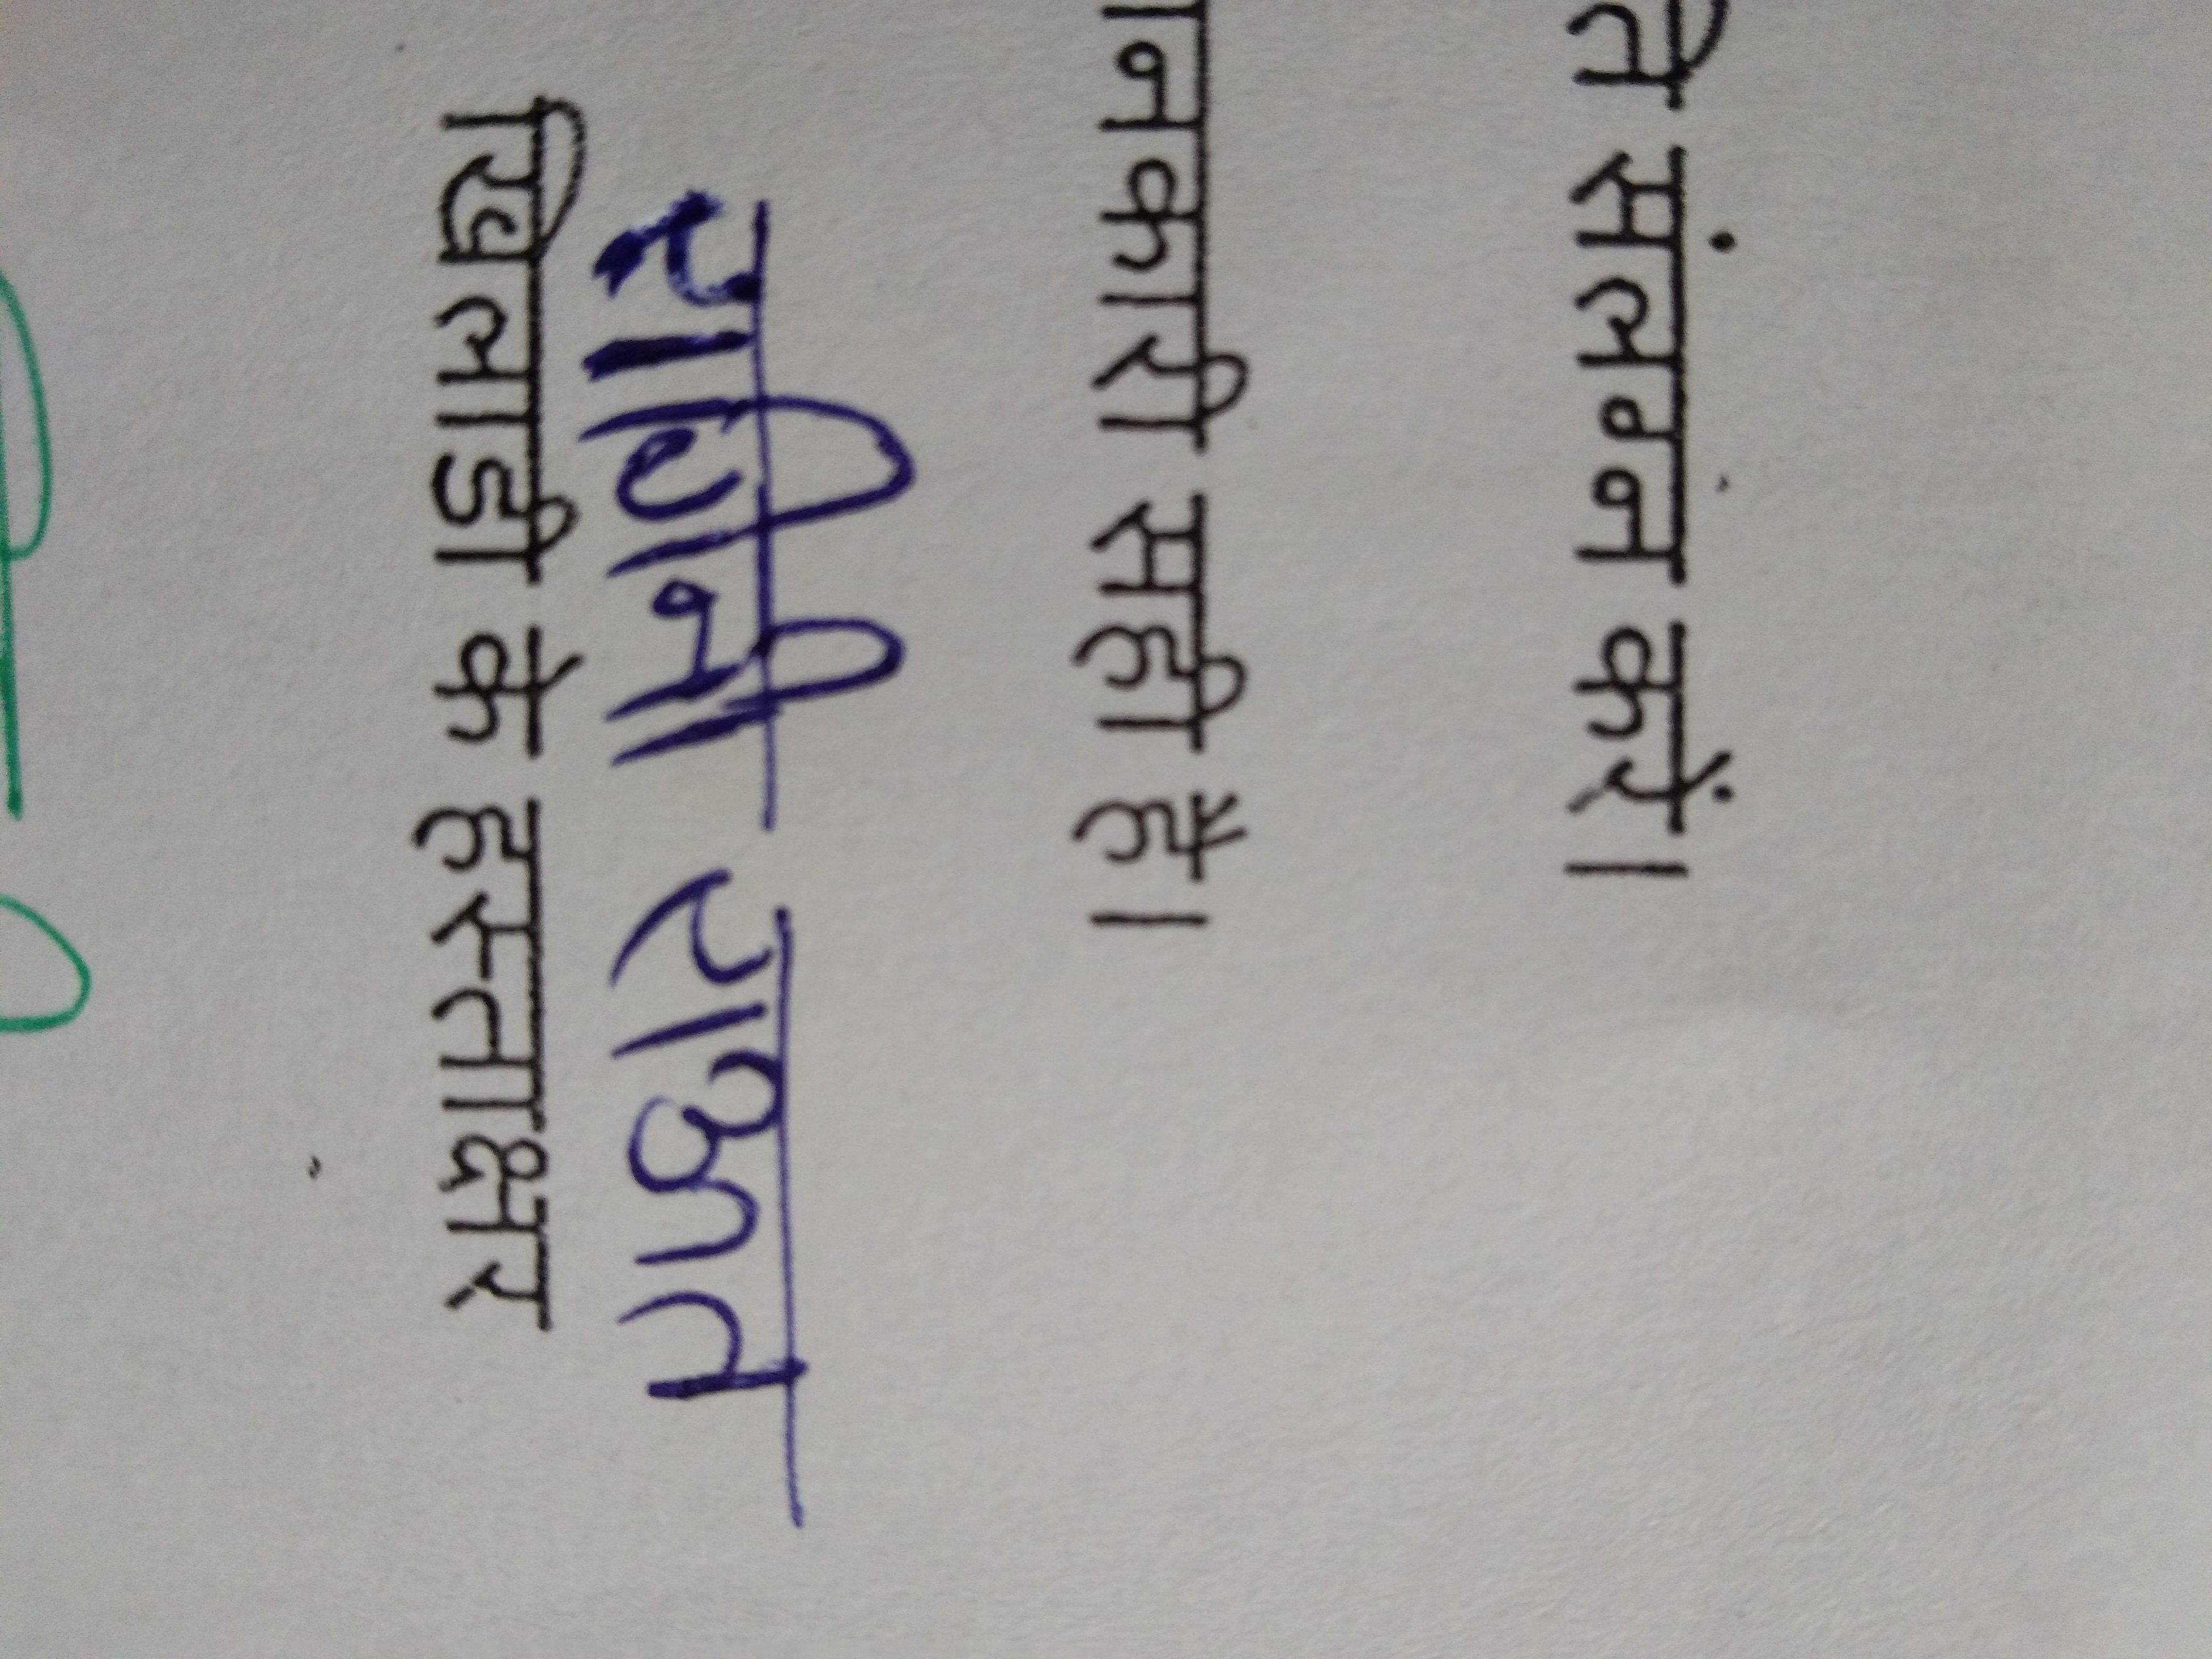 ति संलग्न करें।
ानकारी सही है।
रागिनी राऊत
खिलाडी के हस्ताक्षर